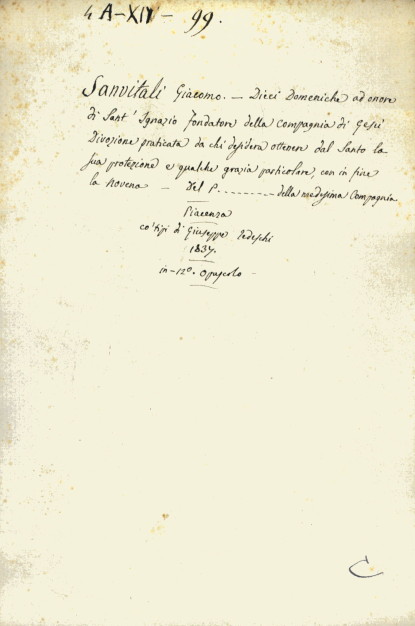 4 A-XIV - 99.
Sanvitali Giacomo. - Dieci Domeniche ad onore
di Sant' Ignazio fondatore della Compagnia di Gesù
Divozione praticata da chi desidera ottenere dal Santo la
sua protezione e qualche grazia particolare, con in fine
la Novena - Del P. ......... della medesima Compagnia
Piacenza
co' tipi di Giuseppe Tedeschi
1837.
in-12°. Opuscolo -
C